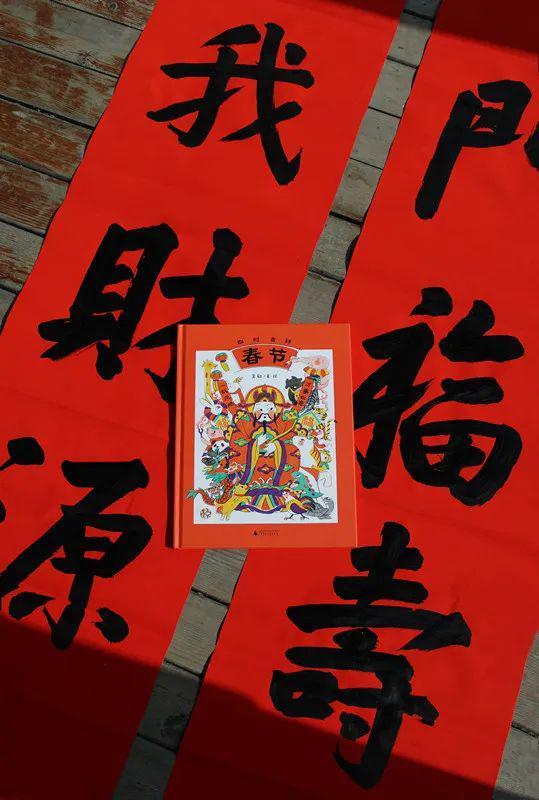 我
財
源
門
福
壽
四时吉祥
春节